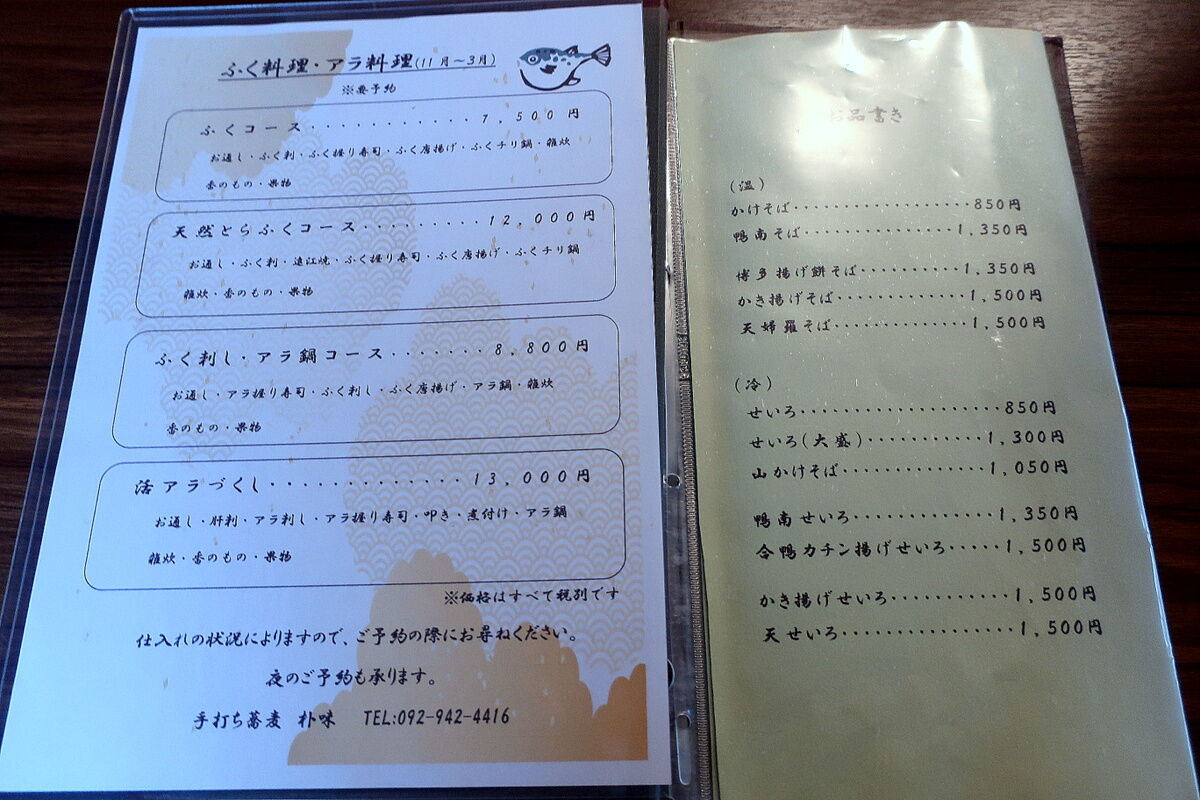 ふく料理・アラ料理(11月～3月)
※要予約
ふくコース・・・・・・・・・・・・7,500円
お通し・ふく刺・ふく握り寿司・ふく唐揚げ・ふくチリ鍋・雑炊
香のもの・果物
天然とらふくコース・・・・・・・・・12,000円
お通し・ふく刺・遠江焼・ふく握り寿司・ふく唐揚げ・ふくチリ鍋
雑炊・香のもの・果物
ふく刺し・アラ鍋コース・・・・・・・8,800円
お通し・アラ握り寿司・ふく刺し・ふく唐揚げ・アラ鍋・雑炊
香のもの・果物
活アラづくし・・・・・・・・・・・・・13,000円
お通し・肝刺・アラ刺し・アラ握り寿司・叩き・煮付け・アラ鍋
雑炊・香のもの・果物
※価格はすべて税別です
仕入れの状況によりますので、ご予約の際にお尋ねください。
夜のご予約も承ります。
手打ち蕎麦 朴味 TEL:092-942-4416
お品書き
(温)
かけそば・・・・・・・・・・・・・・・・・850円
鴨南そば・・・・・・・・・・・・・・1,350円
博多揚げ餅そば・・・・・・・・・・1,350円
かき揚げそば・・・・・・・・・・・・1,500円
天婦羅そば・・・・・・・・・・・・・1,500円
(冷)
せいろ・・・・・・・・・・・・・・・・・・・850円
せいろ(大盛)・・・・・・・・・・・1,300円
山かけそば・・・・・・・・・・・・・・1,050円
鴨南せいろ・・・・・・・・・・・・・・1,350円
合鴨カチン揚げせいろ・・・・・1,500円
かき揚げせいろ・・・・・・・・・・・・1,500円
天せいろ・・・・・・・・・・・・・・・・・1,500円